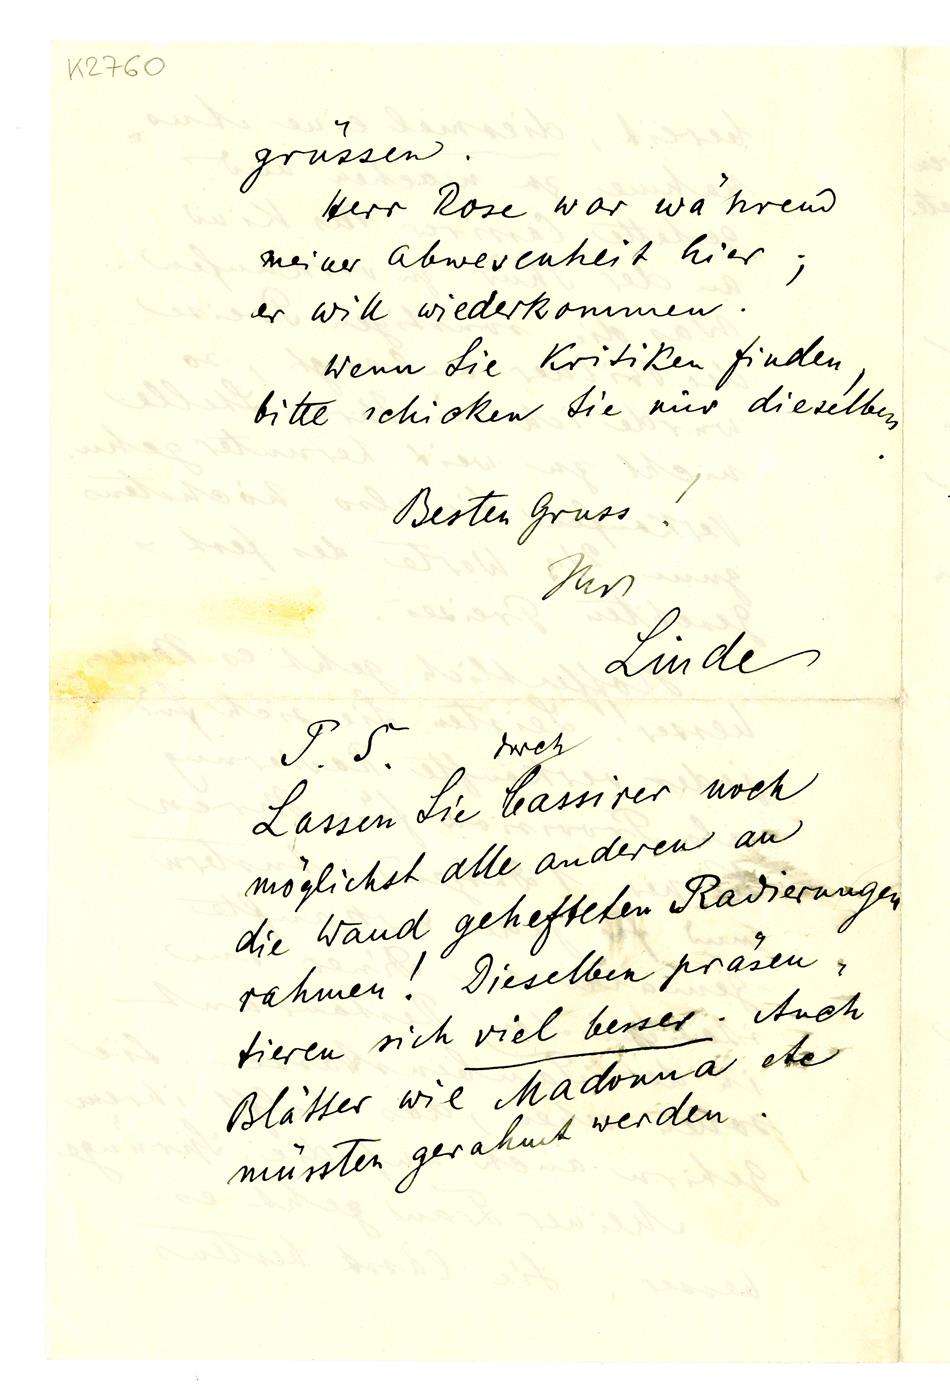 K2760
grüssen.
Herr Rose war während
meiner Abwesenheit hier;
er will wiederkommen.
Wenn Sie Kritiken finden,
bitte schicken Sie mir dieselben
.
Besten Gruss!
Ihr
Linde
P. S. durch
Lassen Sie Cassirer noch
möglichst alle anderen an
die Wand gehefteten Radierungen
rahmen! Dieselben präsen-
tieren sich viel besser. Auch
Blätter wie Madonna etc
müssten gerahmt werden.